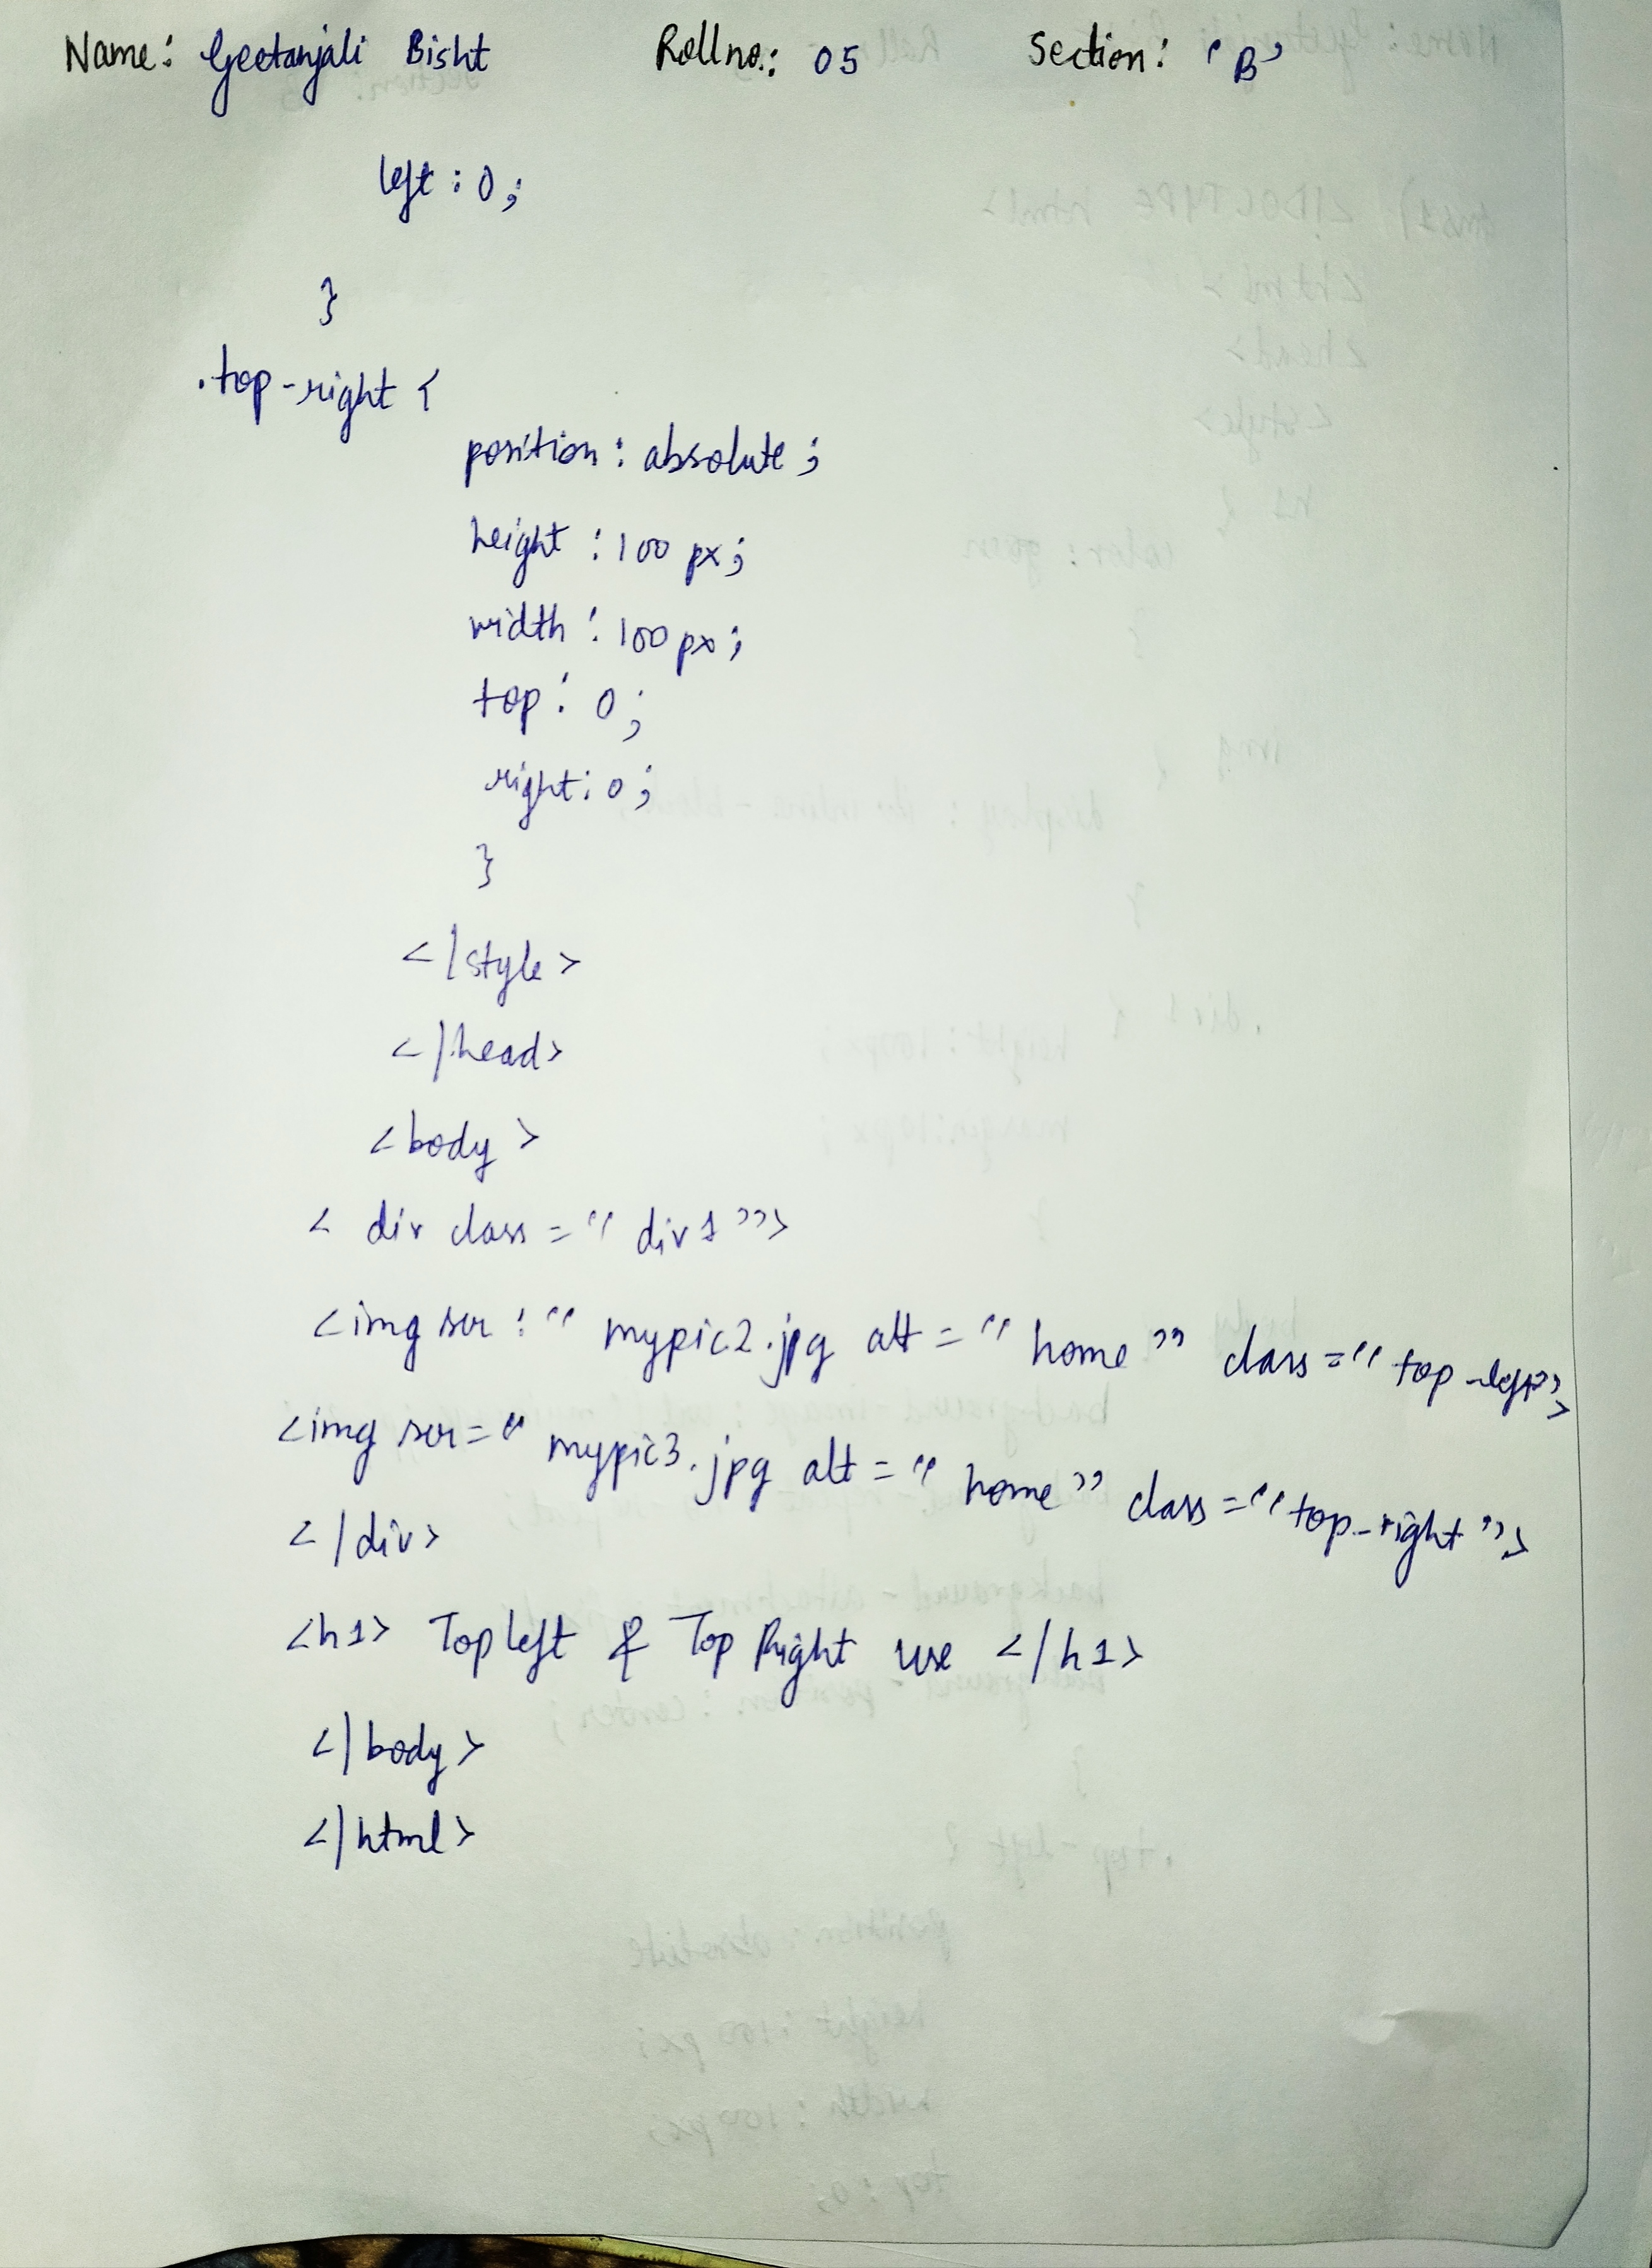 Name: Geetanjali Bisht Roll no.: 05 Section: 'B'
left : 0 ;
}
.top-right {
position : absolute ;
height : 100 px ;
width : 100 px ;
top : 0 ;
right : 0 ;
}
</style>
</head>
<body>
< div class = " div1 ">
<img src : " mypic2.jpg alt = " home " class = " top-left">
<img src = " mypic3.jpg alt = " home " class = " top-right ">
</div>
<h1> Top left & Top Right use </h1>
</body>
</html>